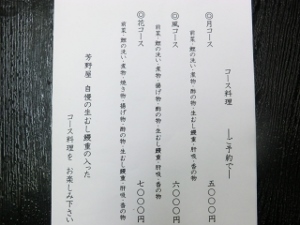 コース料理 ―ご予約で―
◎月コース 五〇〇〇円
前菜・鯉の洗い・煮物・酢の物・生むし鰻重・肝吸・香の物
◎風コース 六〇〇〇円
前菜・鯉の洗い・煮物・揚げ物・酢の物・生むし鰻重・肝吸・香の物
◎花コース 七〇〇〇円
前菜・鯉の洗い・煮物・焼き物・揚げ物・酢の物・生むし鰻重・肝吸・香の物
芳野屋 自慢の生むし鰻重の入った
コース料理を お楽しみ下さい